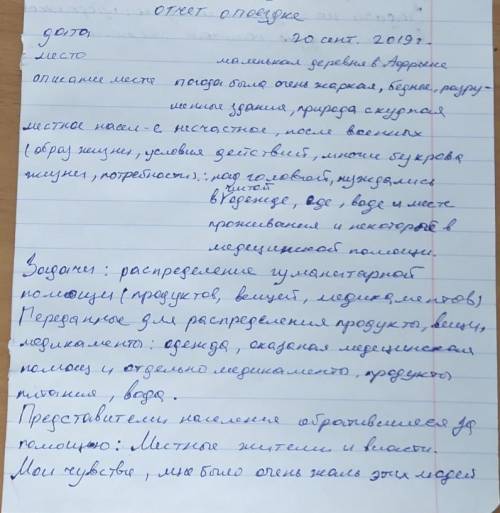 отчет о поездке
дата 20 сент. 2019 г.
место маленькая деревня в Африке
описание места погода была очень жаркая, бедные, разру-
шенные здания, природа скудная
местное насел-е несчастное, после военных
(образ жизни, условия действий, многие без крова
жизни, потребности): над головой, нуждались
в чистой одежде, еде, воде и месте
проживания и некоторые в
медицинской помощи.
Задачи: распределение гуманитарной
помощи (продуктов, вещей, медикаментов)
Переданные для распределения продукты, вещи,
медикаменты: одежда, оказаная медицинская
помощ и отдельно медикаменты, продукты
питания, вода.
Представители населения обратившиеся за
помощью: Местные жители и власти.
Мои чувства, мне было очень жаль этих людей